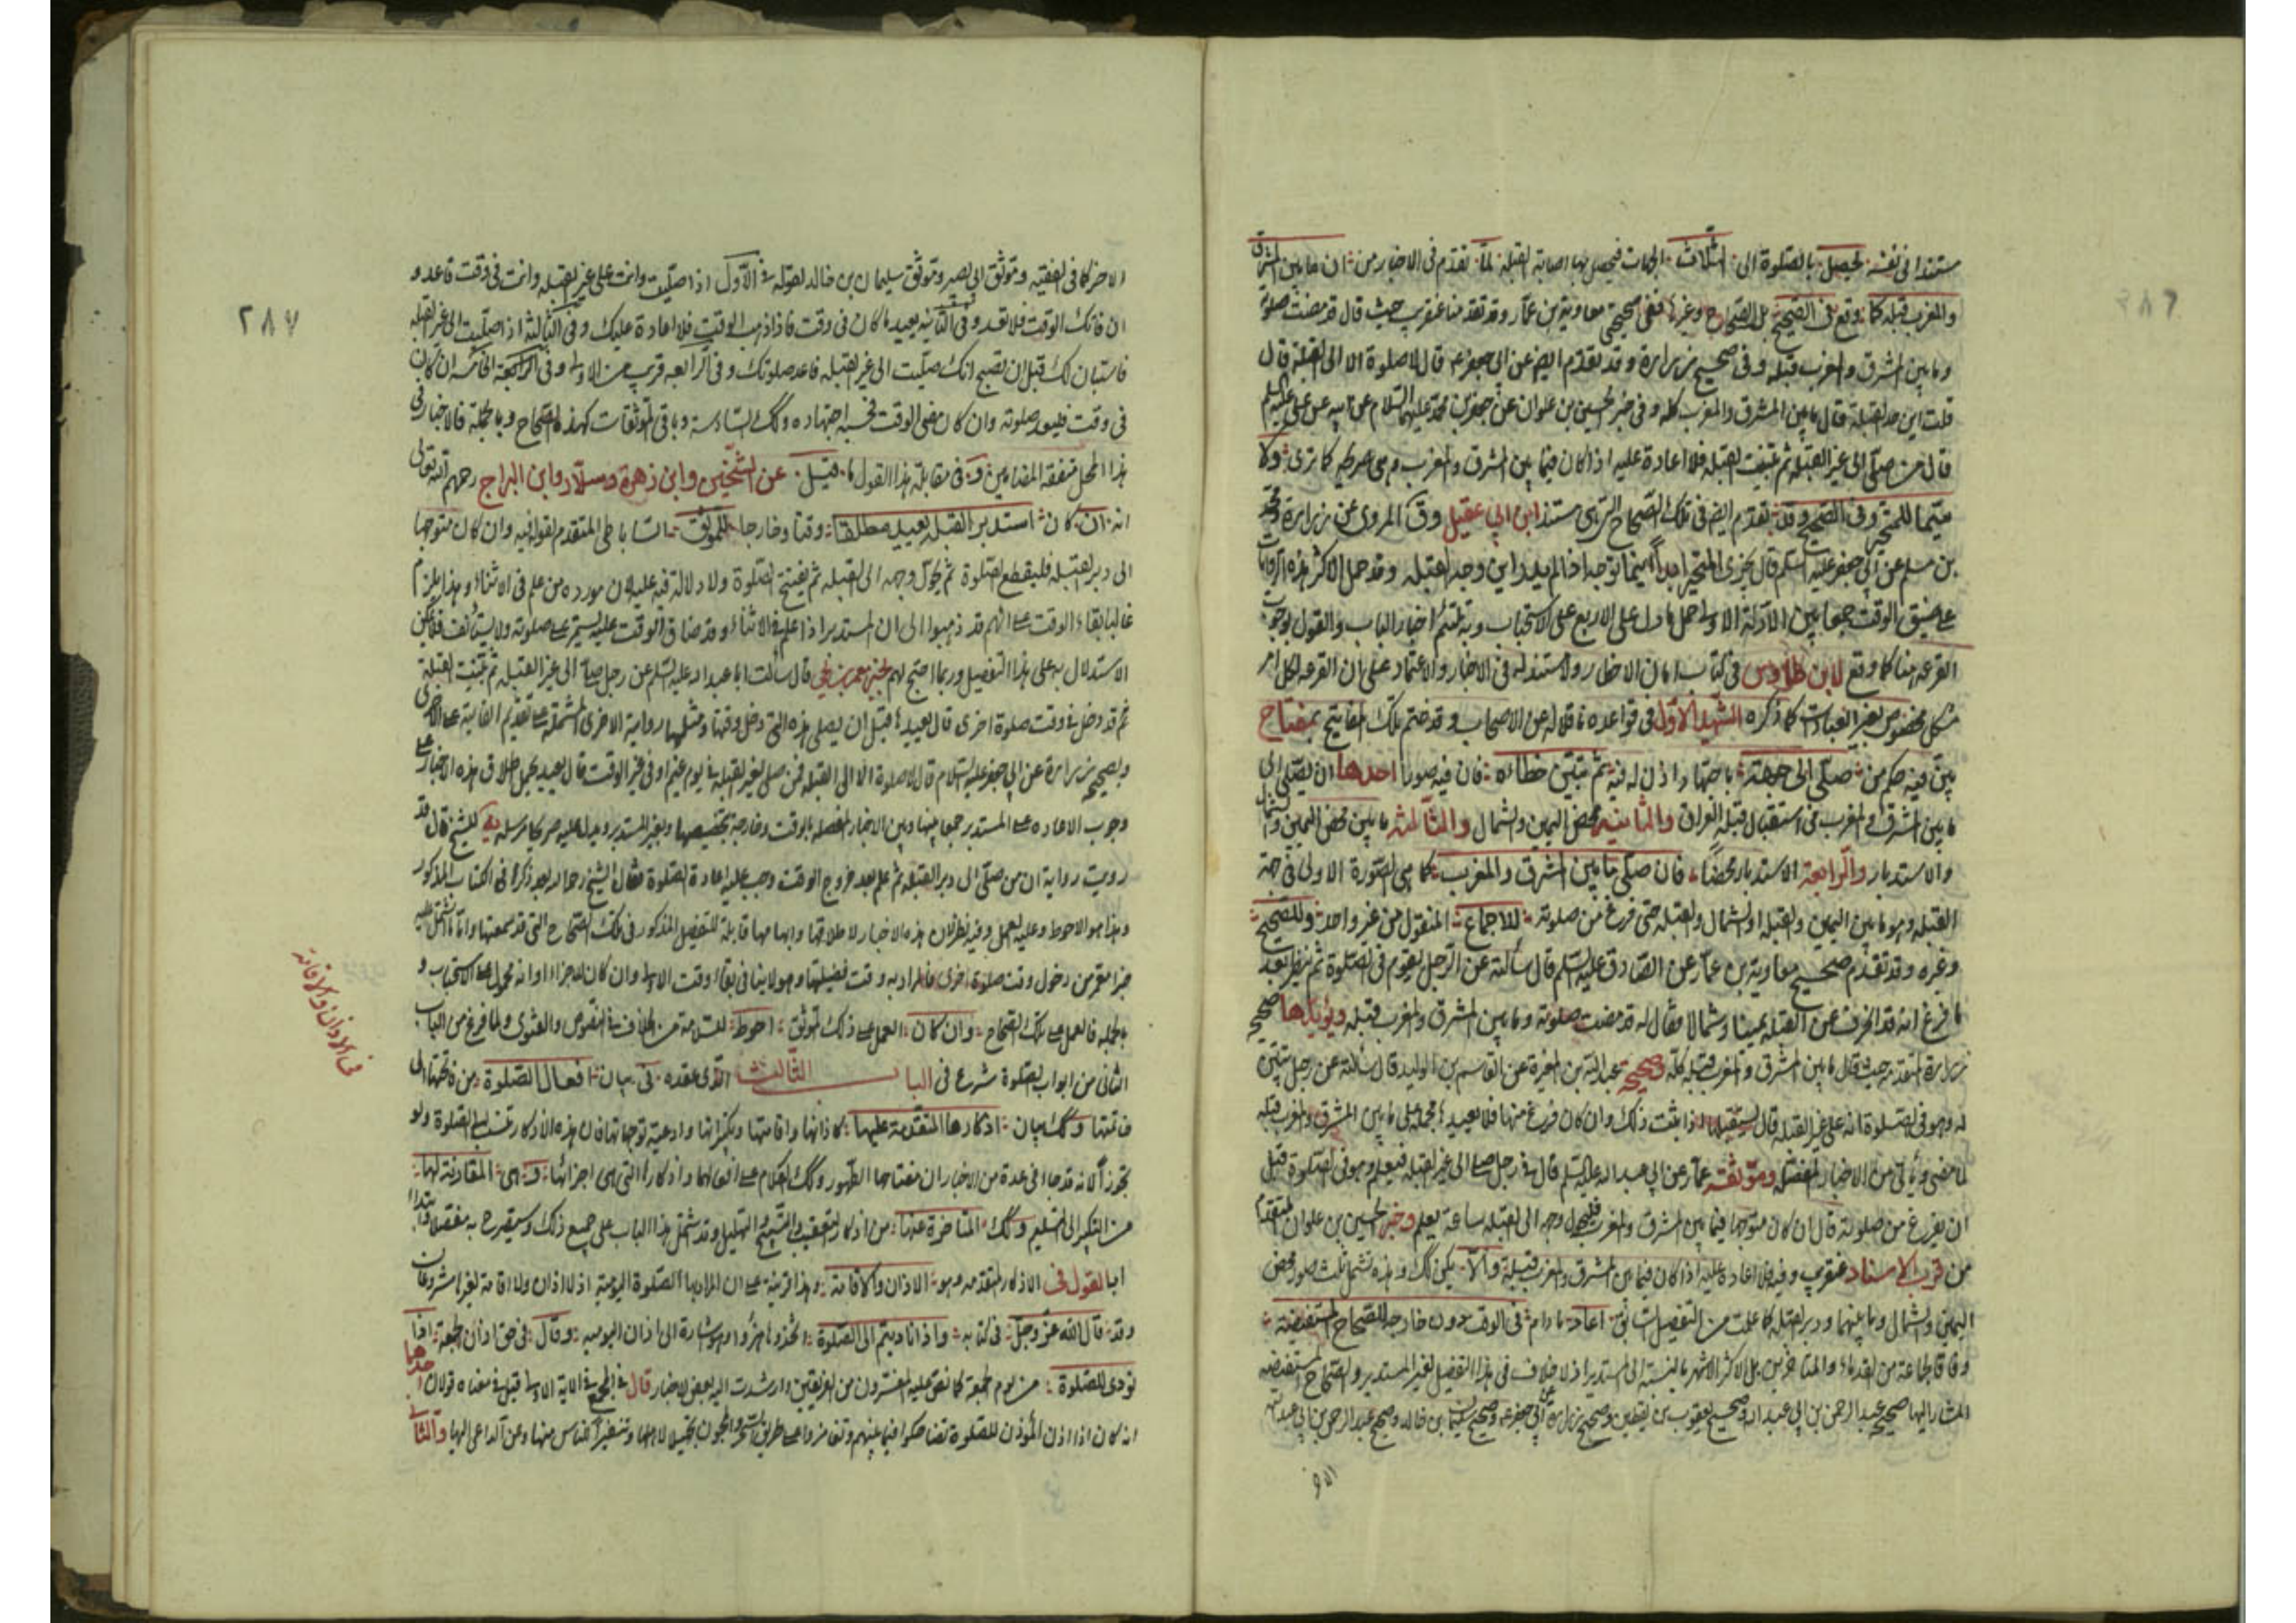 مستندا فى نفسه لتحصيل بالصلوة الى الثلاث الجهات فيحصل بها اصابة القبلة لما تقدم فى الاخبار من ان ما بين المشرق
والمغرب قبلة كما وقع فى الصحيح بل الصحاح وغيرها ففى صحيح معاوية بن عمار وقد تقدمنا عنقريب حيث قال قد مضت صلوته
وما بين المشرق والمغرب قبلة وفى صحيح زرارة وقد تقدم ايضا عن ابى جعفر ع قال لا صلوة الا الى القبلة قال
قلت اين حد القبلة قال ما بين المشرق والمغرب كله وفى خبر الحسين بن علوان عن جعفر بن محمد عليهما السلام عن ابيه عن على عليه السلم
قال من صلى الى غير القبلة ثم تبينت القبلة فلا اعادة عليه اذا كان فيما بين المشرق والمغرب وهى صريحة كما ترى ولا
سيما للمتحير وفى الصحيح وقد تقدم ايضا فى تلك الصحاح التى هى مستند ابن ابى عقيل وق المروى عن زرارة ومحمد
بن مسلم عن ابى جعفر عليه السلم قال يجزى المتحير ابدا اينما توجه اذا لم يعلم اين وجه القبلة وقد حمل الاكثر هذه الروايات
على ضيق الوقت جمعا بين الادلة الاولى حمل ما دل على الاربع على الاستحباب وبه تلتئم اخبار الباب والقول بوجوب
القرعه هنا كما وقع لابن طاوس فى كتاب امان الاخطار ولا مستند له فى الاخبار والاعتماد على ان القرعه لكل امر
مشكل مخصوص بغير العبادات كما ذكره الشهيد الاول فى قواعده ناقلا له عن الاصحاب وقد ختم تلك المفاتيح بمفتاح
بين فيه حكم من صلى الى جهة باجتهاد اذن له فيه ثم تبين خطائه فان فيه صورا احدها ان يصلى الى
ما بين المشرق والمغرب فى استقبال قبلة العراق والثانية محض اليمين والشمال والثالثة ما بين محض اليمين والشمال
والاستدبار والرابعة الاستدبار محضا فان صلى ما بين المشرق والمغرب كما هى الصورة الاولى فى جهة
القبلة وهو ما بين اليمين والقبلة او الشمال والقبلة حتى فرغ من صلوته للاجماع المنقول من غير واحد وللصحيح
وغيره وقد تقدم صحيح معاوية بن عمار عن الصادق عليه السلم قال سألته عن الرجل يقوم فى الصلوة ثم ينظر بعد
ما فرغ انه قد انحرف عن القبلة يمينا وشمالا فقال له قد مضت صلوته وما بين المشرق والمغرب قبلة ويؤيدها صحيح
زرارة المتقدمة حيث قال ما بين المشرق والمغرب قبلة كله وصحيح عبد الله بن المغيرة عن القاسم بن الوليد قال سألته عن رجل تبين
له وهو فى الصلوة انه على غير القبلة قال يستقبلها اذا ثبت ذلك وان كان فرغ منها فلا يعيدها محمله على ما بين المشرق والمغرب قبلة
لما مضى ويأتى من الاخبار المفصلة وموثقة عمار عن ابى عبد الله عليه السلم قال فى رجل صلى الى غير القبلة فيعلم وهو فى الصلوة قبل
ان يفرغ من صلوته قال ان كان متوجها فيما بين المشرق والمغرب فليحول وجهه الى القبلة ساعة يعلم وخبر الحسين بن علوان المتقدم
من قرب الاسناد عنقريب وفيه فلا اعادة عليه اذا كان فيما بين المشرق والمغرب قبلة والا يكن كك وهذه تشمل ثلث صور محض
اليمين والشمال وما بينهما ودبر القبلة كما علمت من التفصيل السابق اعاد ما دام فى الوقت دون خارجه للصحاح المستفيضة
وفاقا لجماعة من القدماء والمتاخرين بل الاكثر الاشهر بالنسبة الى المستدبر اذ لا خلاف فى هذا التفصيل لغير المستدبر والصحاح المستفيضه
المشار اليها صحيح عبد الرحمن بن ابى عبد الله وصحيح يعقوب بن يقطين وصحيح زرارة عن ابى جعفر ع وصحيح سليمان بن خالد وصحيح عبد الرحمن بن ابى عبد الله
الاخر
٢٨٧
الاخر كما فى الفقيه وموثق ابى بصير وموثق سليمان بن خالد لقوله فى الاول اذا صليت وانت على غير القبلة وانت فى وقت فاعد و
ان فاتك الوقت فلا تعد وفى الثانية يعيدها كان فى وقت فاذا ذهب الوقت فلا اعادة عليك وفى الثالثة اذا صليت الى غير القبلة
فاستبان لك قبل ان تصبح انك صليت الى غير القبلة فاعد صلوتك وفى الرابعة قريب من الاولى وفى الخامسة ان كان
فى وقت فليعد صلوته وان كان مضى الوقت فحسبه اجتهاده وكك السادسة وباقى الموثقات كهذه الصحاح وبالجملة فالاخبار فى
هذا المحل متفقة المضامين وفى مقابلة هذا القول ما قيل عن الشيخين وابن زهرة وسلار وابن البراج رحمهم الله تعالى
انه ان كان استدبر القبلة يعيد مطلقا وقتا وخارجا للموثق الساباطى المتقدم لقوله فيه وان كان متوجها
الى دبر القبلة فليقطع الصلوة ثم يحول وجهه الى القبلة ثم يفتتح الصلوة ولا دلالة فيه عليه لان مورده من علم فى الاثناء وهذا يلزم
غالبا بقاء الوقت على انهم قد ذهبوا الى ان المستدبر اذا علم فى الاثناء وقد ضاق الوقت عليه يستمر على صلوته ولا يستأنف فلا يمكن
الاستدلال به على هذا التفصيل وربما احتج لهم بخبر معمر بن يحيى قال سألت ابا عبد الله عليه السلم عن رجل صلى الى غير القبلة ثم تبينت القبلة
ثم قد دخل فى وقت صلوة اخرى قال يعيدها قبل ان يصلى هذه التى دخل وقتها ومثلها روايته الاخرى المشتملة على تقديم الفايتة على الاخرى
وبصحيح زرارة عن ابى جعفر عليه السلام قال لا صلوة الا الى القبلة فمن صلى لغير القبلة فى يوم غيم او فى غير الوقت قال يعيد بحمل اطلاق هذه الاخبار على
وجوب الاعاده على المستدبر جمعا بينها وبين الاخبار المفصله بالوقت وخارجه بتخصيصها وبغير المستدبر ويدل عليه صريحا مرسلة يه للشيخ قال قد
رويت رواية ان من صلى الى دبر القبلة ثم علم بعد خروج الوقت وجب عليه اعادة الصلوة فقال الشيخ رحمه الله بعد ذكرها فى الكتاب المذكور
وهذا هو الاحوط وعليه العمل وفيه نظر لان هذه الاخبار لاطلاقها وابهامها قابلة للتفصيل المذكور فى تلك الصحاح التى قد سمعتها واما ما اشتمل عليه
خبرا معمر من دخول وقت صلوة اخرى فالمراد به وقت فضيلتها وهو لا ينافى بقاء وقت الاولى وان كان للاجزاء او انه محمول على الاستحباب و
بالجمله فالعمل على تلك الصحاح وان كان العمل على ذلك الموثق احوط للسلامة من الخلاف فى النصوص والفتوى ولما فرغ من الباب
الثانى من ابواب الصلوة شرع فى الباب الثالث الذى عقده فى بيان افعال الصلوة من فاتحتها الى
خاتمتها وكك بيان اذكارها المتقدمة عليها كاذانها واقامتها وتكبيراتها وادعية توجهاتها فان هذه الاذكار تنسب الى الصلوة ولو
تجوزا لانه قد جاء فى عدة من الاخبار ان مفتاحها الطهور وكك الكلام على افعالها واذكارها التى هى اجزائها وهى المقارنة لها
من التكبير الى التسليم وكك المتاخرة عنها من اذكار التعقيب والتسبيح والتهليل وقد شمل هذا الباب على جميع ذلك وسيصرح به مفصلا ابتداء
اما القول فى الاذكار المتقدمة وهو الاذان والاقامة وهذا قرينة على ان المراد بها الصلوة اليومية اذ لا اذان ولا اقامة لغيرها مشروعان
وقد قال الله عز وجل فى كتابه واذا ناديتم الى الصلوة اتخذوها هزوا وهو اشارة الى اذان اليومية وقال فى حق اذان الجمعة اذا
نودى للصلوة من يوم الجمعة كما نص عليه المفسرون من الفريقين وارشدت اليه بعض الاخبار قال فى المجمع فى الاية الاولى قيل فى معناه قولان احدهما
انه كان اذا اذن المؤذن للصلوة تضاحكوا فيما بينهم وتغامزوا على طريق السخف والمجون تجهيلا لاهلها وتنفيرا للناس منها وعن الداعى اليها والثانى
فى الاذان والاقامة